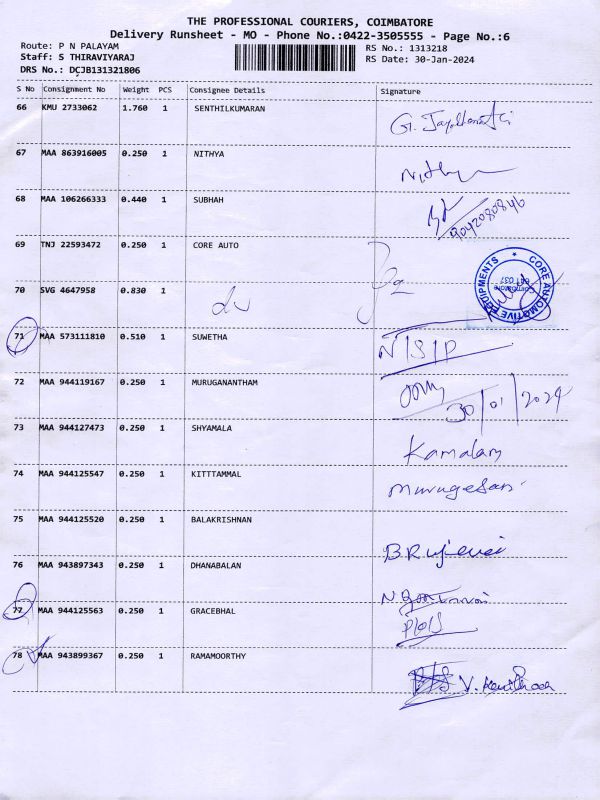 THE PROFESSIONAL COURIERS, COIMBATORE
Delivery Runsheet - MO - Phone No.:0422-3505555 - Page No.:6
Route: P N PALAYAM
RS No.: 1313218
Staff: S THIRAVIYARAJ
RS Date: 30-Jan-2024
DRS No.: DCJB131321806
S No Consignment No Weight PCS Consignee Details Signature
66 KMU 2733062 1.760 1 SENTHILKUMARAN
67 MAA 863916005 0.250 1 NITHYA Nithya
68 MAA 106266333 0.440 1 SUBHAH 9042080846
69 TNJ 22593472 0.250 1 CORE AUTO
CORE AUTOMOTIVE EQUIPMENTS
70 SVG 4647958 0.830 1
71 MAA 573111810 0.510 1 SUWETHA N/S/P
72 MAA 944119167 0.250 1 MURUGANANTHAM 30/01/2024
73 MAA 944127473 0.250 1 SHYAMALA Kamalam
74 MAA 944125547 0.250 1 KITTTAMMAL Murugesan
75 MAA 944125520 0.250 1 BALAKRISHNAN
76 MAA 943897343 0.250 1 DHANABALAN
77 MAA 944125563 0.250 1 GRACEBHAL
78 MAA 943899367 0.250 1 RAMAMOORTHY